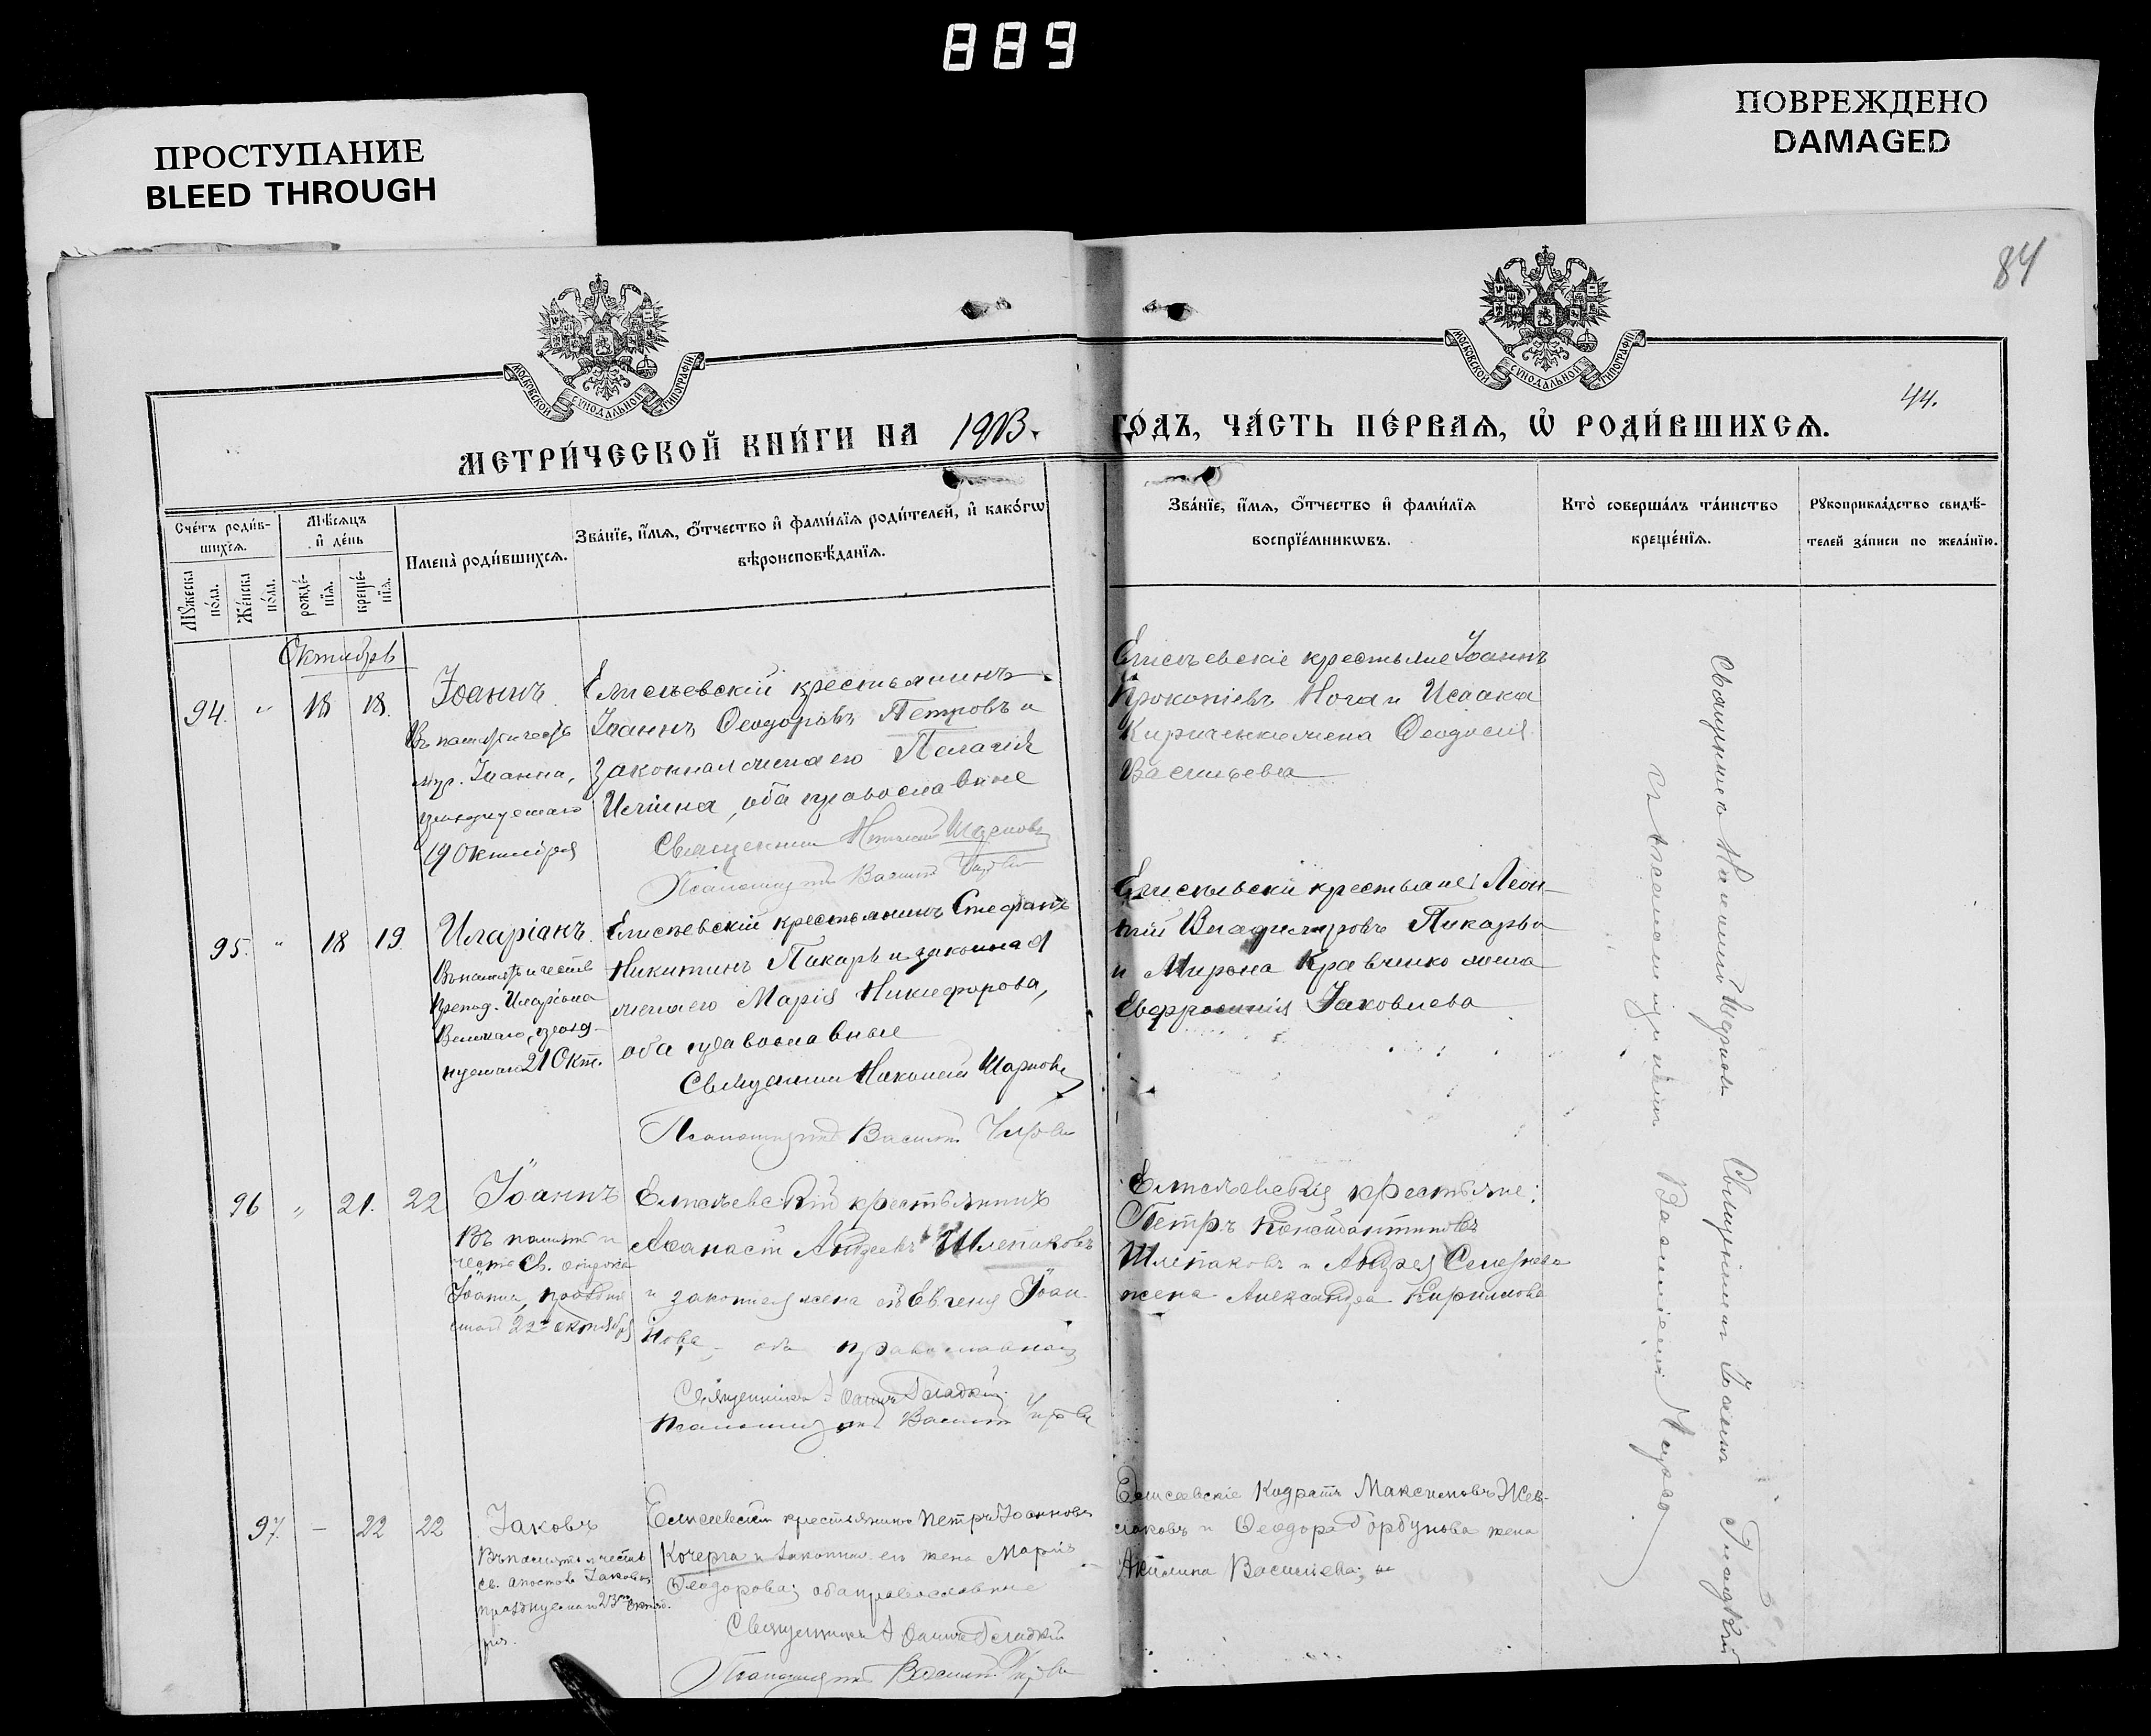 889
ПРОСТУПАНИЕ
BLEED THROUGH
ПОВРЕЖДЕНО
DAMAGED
84
МОСКОВСКОЙ СѴНОДАЛЬНОЙ ТИПОГРАФІИ
МОСКОВСКОЙ СѴНОДАЛЬНОЙ ТИПОГРАФІИ
44.
МЕТРИ́ЧЕСКОЙ КНИ́ГИ НА 1903.
ГО́ДЪ, ЧА́СТЬ ПЕ́РВАѦ, Ѡ РОДИ́ВШИХСѦ.
Сче́тъ роди́в-
шихсѧ.
Мꙋ́жеска по́ла.
Же́нска по́ла.
Мѣ́сѧцъ
и҆ де́нь
рожде́-
нїѧ.
креще́-
нїѧ.
И҆мена̀ роди́вшихсѧ.
Зва́нїе, и҆́мѧ, ѻ҆́тчество и҆ фами́лїѧ роди́телей, и҆ како́гѡ
вѣроисповѣ́данїѧ.
Зва́нїе, и҆́мѧ, ѻ҆́тчество и҆ фами́лїѧ
воспрїе́мникѡвъ.
Кто̀ соверша́лъ та́инство
креще́нїѧ.
Рꙋкоприкла́дство свидѣ́-
телей за́писи по жела́нїю.
Октябрь
94. " 18 18.
Іоаннъ
Въ память и честь
Іоанна,
празднуемаго
19 Октября
Елисѣевскій крестьянинъ
Іоаннъ Ѳеодоровъ Петровъ и
законная жена его Пелагія
Илііна, оба православные
Священникъ
Псаломщикъ Василій
Елисѣевскіе крестьяне Іоаннъ
Прокопіевъ Нога и Исаака
Кириченко жена Ѳеодосія
Васильева
95. " 18 19.
Иларіанъ
Въ память и честь
Препод. Иларіона
Великаго, празд-
нуемаго 21 Окт.
Елисѣевскій крестьянинъ Стефанъ
Никитинъ Пикарь и законная
жена его Марія Никифорова,
оба православные
Священникъ
Псаломщикъ Василій
Елисѣевскіе крестьяне: Леон-
тій Владиміровъ Пикарь
и Мирона Кравченко жена
Евфросинія Іаковлева
96 " 21. 22
Іоаннъ
Въ память и
честь Св.
Іоанна,
22го октября
Елисѣевскій крестьянинъ
Аѳанасій Андреевъ Шлепаковъ
и законная жена его Евгенія Іоан-
нова, оба православные
Священникъ Іоаннъ Гладкій
Псаломщикъ Василій
Елисѣевскіе крестьяне:
Петръ Константиновъ
Шлепаковъ и Андрея Селезнева
жена Александра Кириллова
97. – 22 22
Іаковъ
Въ память и честь
св. апостола Іакова,
празднуемаго 23го октяб-
ря.
Елисѣевскій крестьянинъ Петръ Іоанновъ
Кочерга и законная его жена Марія
Ѳеодорова; оба православные
Священникъ Іоаннъ Гладкій
Псаломщикъ Василій
Елисѣевскіе Кодратъ Максимовъ Жев-
лаковъ и Ѳеодора Горбунова жена
Акилина Васильева;
Священникъ
Священникъ Іоаннъ Гладкій
съ псаломщикомъ Василіемъ